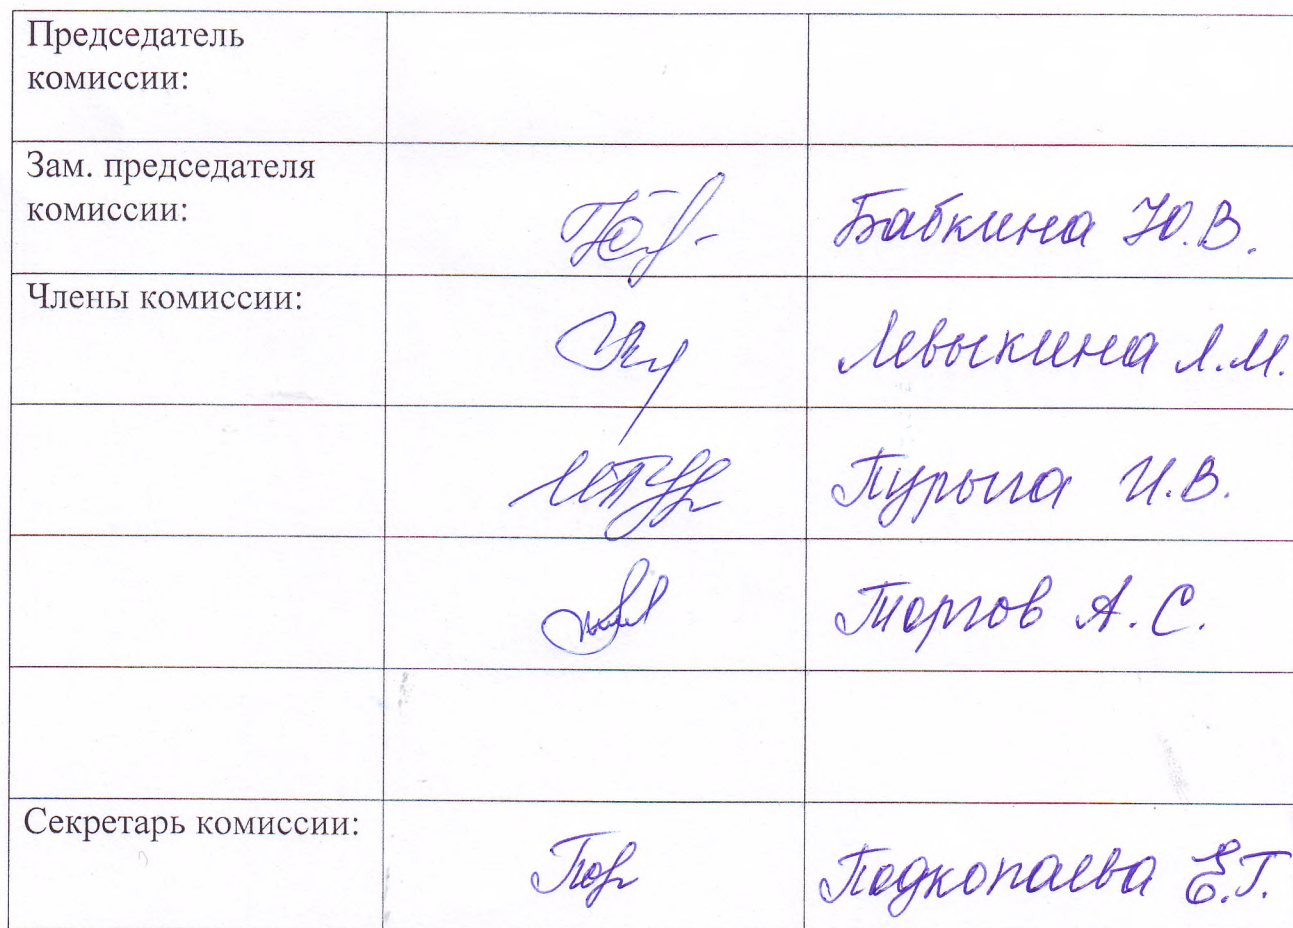 Председатель
комиссии:
Зам. председателя
комиссии:
Бабкина Ю.В.
Члены комиссии:
Левыкина Л.М.
Пурыга И.В.
Торгов А.С.
Секретарь комиссии:
Подкопаева Е.Г.